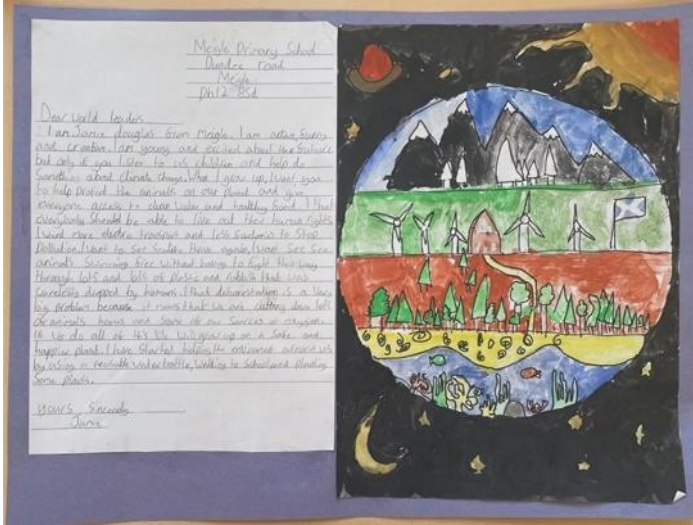 Meigle Primary School
Dundee road
Meigle
Ph12 8sd
Dear World leaders
I am Jamie douglas from Meigle. I am active, funny
and creative. I am young and excited about the future
but only if you listen to us children and help do
Something about climate change. When I grow up, I want you
to help protect the animals on our planet and give
everyone access to clean water and healthy food. I think
everybody should be able to live out their human rights
I want more electric transport and less factories to Stop
Pollution. I want to see Scotland thrive again, I want See See
animals Swimming free without having to fight their way
through lots and lots of plastic and rubbish that was
carelessly dropped by humans. I think deforestation is a very
big problem because it means that we are cutting down lots
of animals homes and Some of our Sources of oxygen.
If we do all of this We will grow up on a Safe and
happier planet. I have Started helping the enviroment around us
by using a reusable water bottle, walking to School and planting
Some plants.
yours Sincerely
Jamie